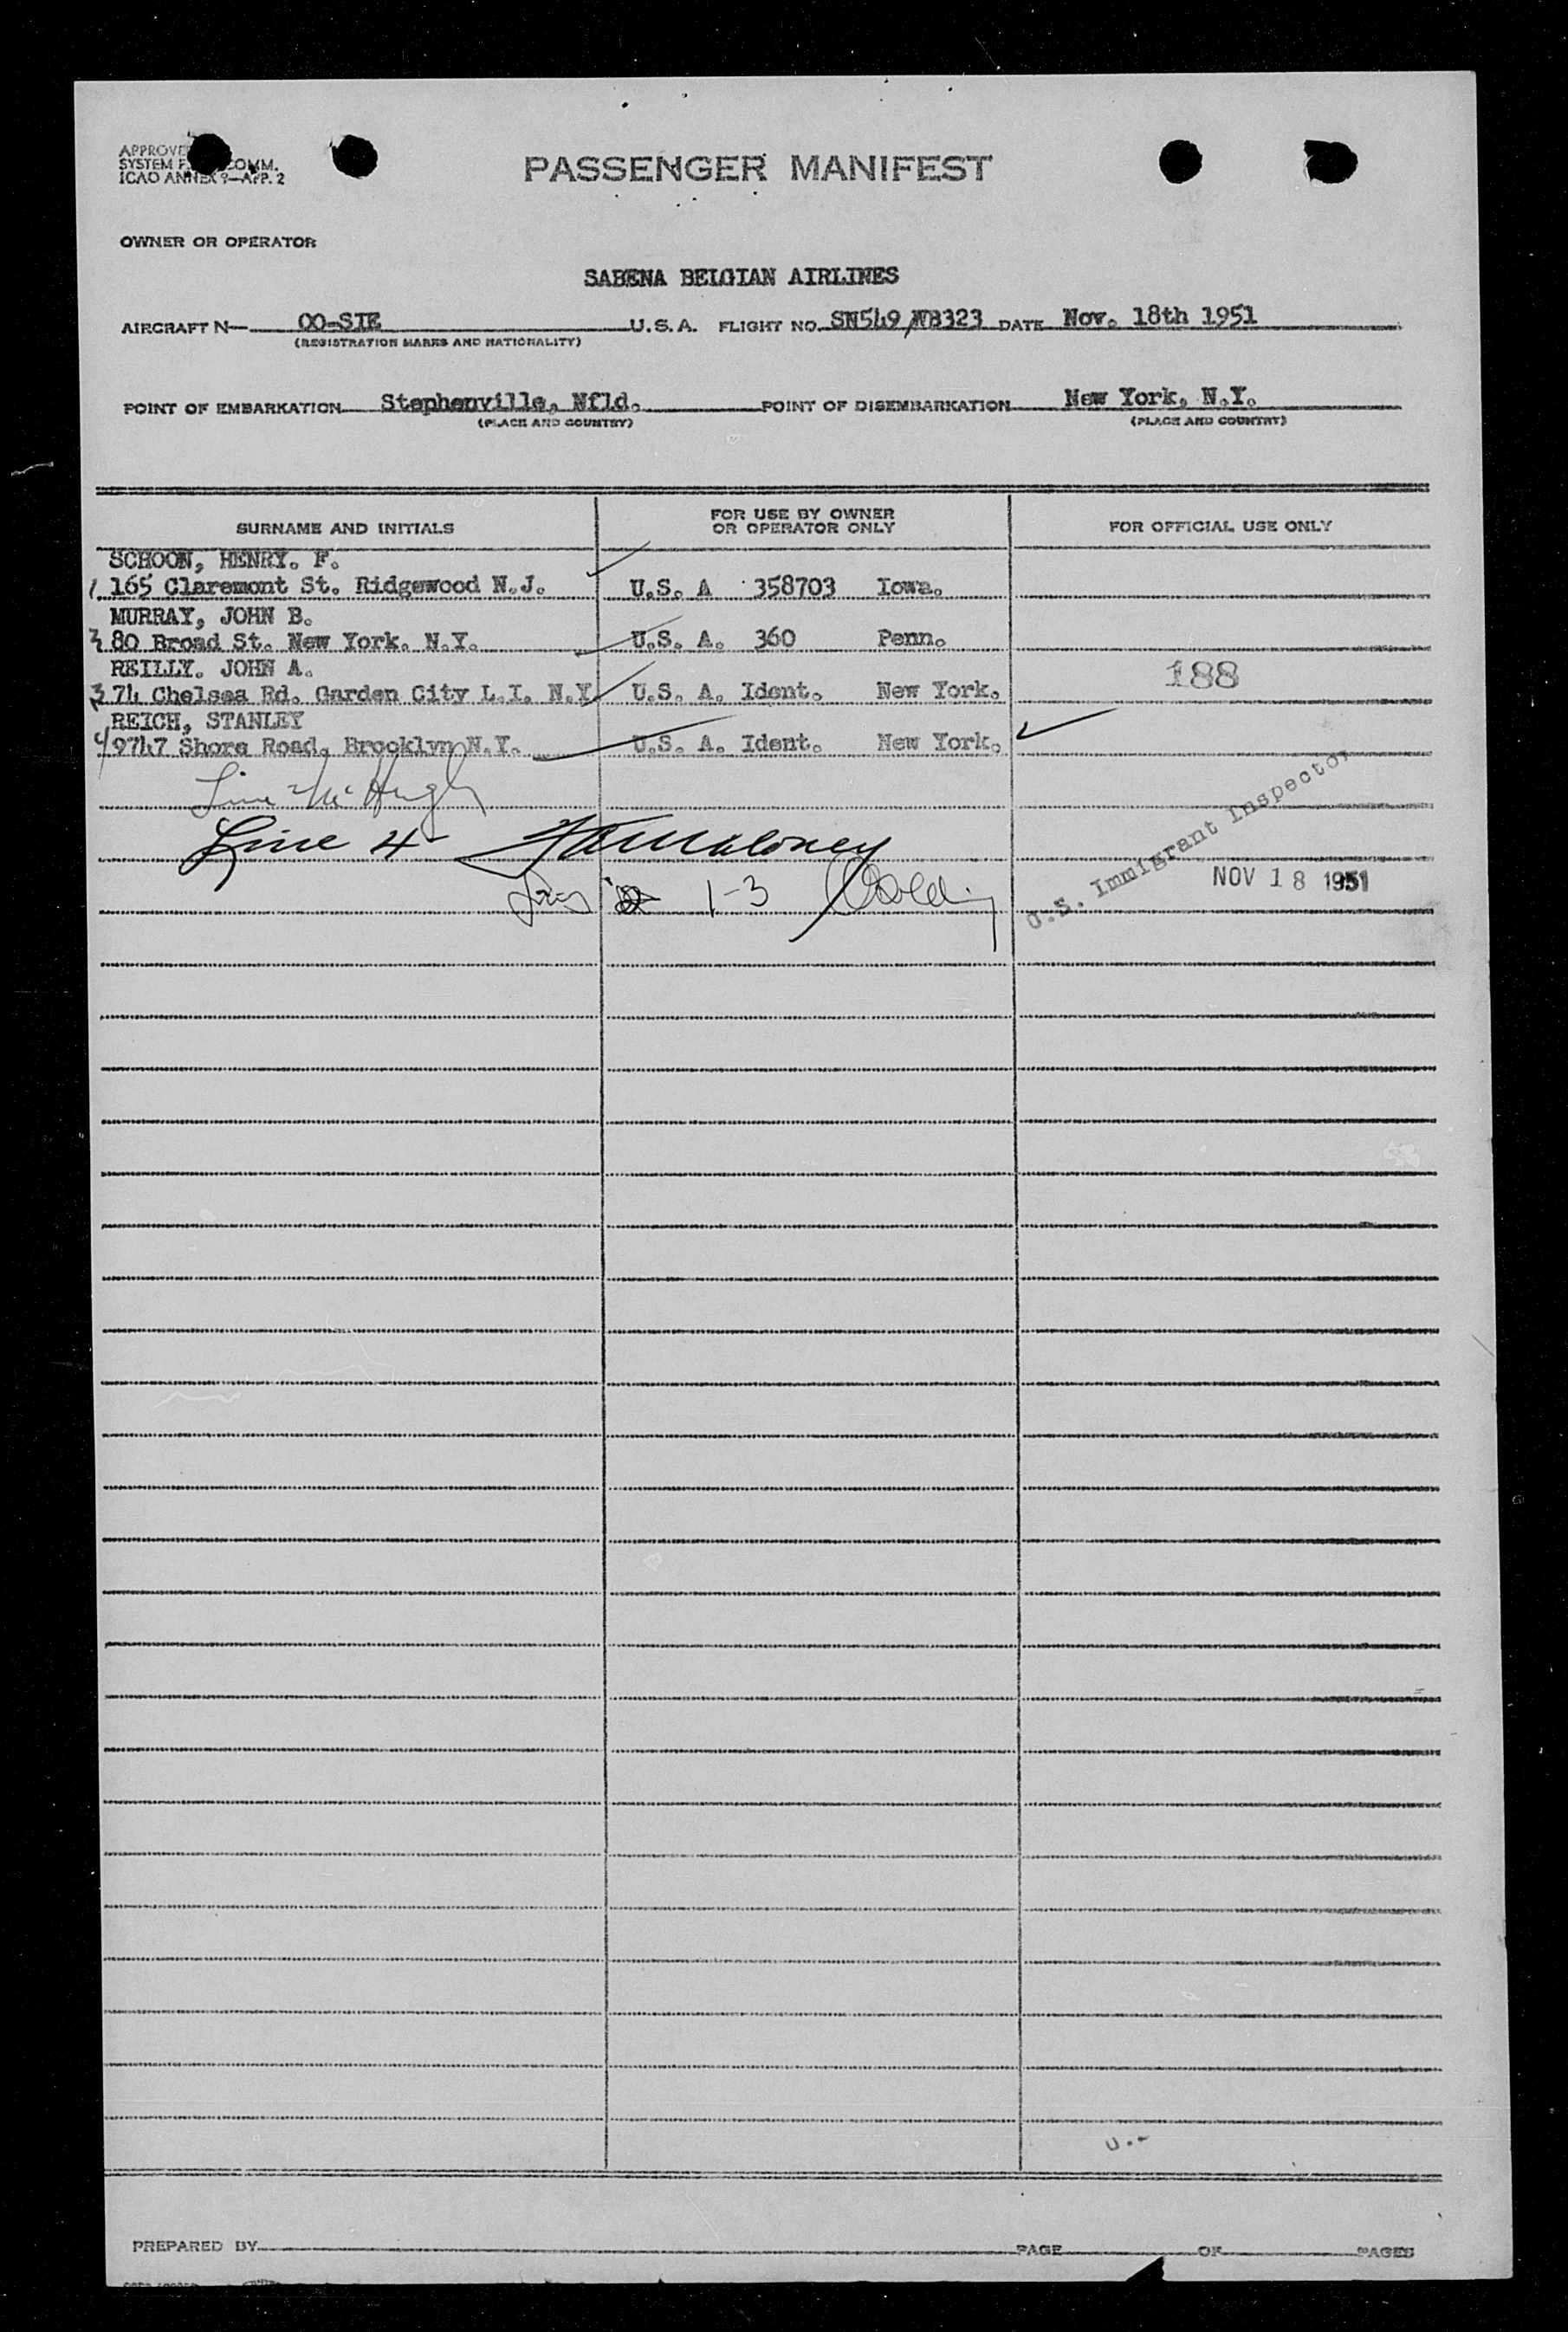 APPROVED
SYSTEM F COMM.
ICAO ANNEX 9—APP. 2
PASSENGER MANIFEST
OWNER OR OPERATOR
SABENA BELGIAN AIRLINES
AIRCRAFT N— OO-SIE U.S.A. FLIGHT NO. SN549/WB323 DATE Nov. 18th 1951
(REGISTRATION MARKS AND NATIONALITY)
POINT OF EMBARKATION Stephenville, Nfld. POINT OF DISEMBARKATION New York, N.Y.
(PLACE AND COUNTRY) (PLACE AND COUNTRY)
SURNAME AND INITIALS FOR USE BY OWNER OR OPERATOR ONLY FOR OFFICIAL USE ONLY
SCHOON, HENRY. F.
1 165 Claremont St. Ridgewood N.J. U.S. A 358703 Iowa.
MURRAY, JOHN B.
80 Broad St. New York. N.Y. U.S. A. 360 Penn.
REILLY. JOHN A.
3 74 Chelsea Rd. Garden City L.I. N.Y U.S. A. Ident. New York.
188
REICH, STANLEY
4 9747 Shore Road. Brooklyn N.Y. U.S. A. Ident. New York.
Line McHugh
Line 4 Maloney
1-3
U.S. Immigrant Inspector
NOV 18 1951
PREPARED BY PAGE OF PAGES